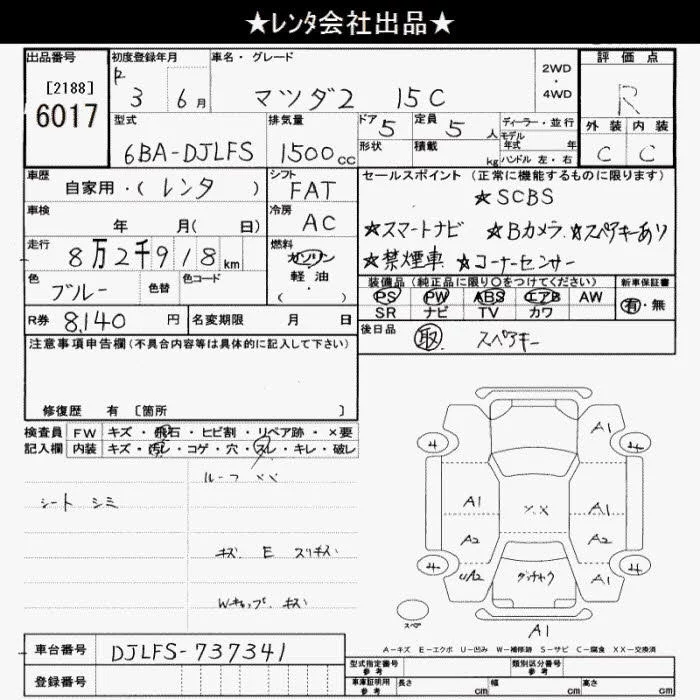 ★レンタ会社出品★
出品番号 [2188] 6017
初度登録年月 R 3 年 6 月
車名・グレード マツダ2 15C
2WD ・ 4WD
評価点 R
外装 C 内装 C
型式 6BA-DJLFS
排気量 1500 cc
ドア 5 定員 5 人
形状 積載 kg
ディーラー・並行
モデル年式 年
ハンドル 左・右
車歴 自家用・(レンタ)
シフト FAT
車検 年 月( 日)
冷房 AC
走行 8万2千918km
燃料 ガソリン 軽油 ( ・ )
色 ブルー 色替 色コード
R券 8,140 円 名変期限 月 日
セールスポイント (正常に機能するものに限ります)
☆SCBS
☆スマートナビ ☆Bカメラ ☆スペアキーあり
☆禁煙車 ☆コーナーセンサー
装備品(純正品に限り○をつけてください) 新車保証書
PS PW ABS エアB AW 有・無
SR ナビ TV カワ
後日品 取 スペアキー
注意事項申告欄(不具合内容等は具体的に記入して下さい)
修復歴 有 [箇所 ]
検査員 FW キズ・飛石・ヒビ割・リペア跡・×要
記入欄 内装 キズ・汚レ・コゲ・穴・スレ・キレ・破レ
ルーフ XX
シート シミ
キズ E スリキズ
Wキャップ キズ
A1
4 4
A1 XX A1
A2 A2
4 U/A2 A1 4
スペア
A1
A-キズ E-エクボ U-凹み W-補修跡 S-サビ C-腐食 XX-交換済
車台番号 DJLFS-737341
登録番号
型式指定番号 参考 類別区分番号 参考
車庫証明用 参考 長さ cm 幅 cm 高さ cm